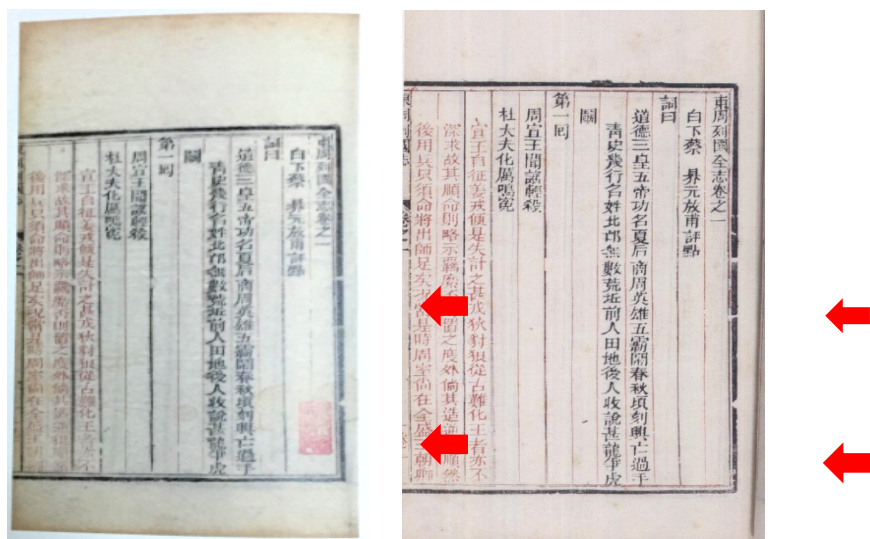 東周列國全志卷之一
白下蔡 元放甫評點
詞曰
道德三皇五帝功名夏后商周英雄五霸鬧春秋頃刻興亡過手
青史幾行名姓北邙無數荒坵前人田地後人收說甚龍爭虎
鬬
第一回
周宣王聞謠輕殺
杜大夫化厲鳴冤
宣王自征姜戎便是失計之甚戎狄豺狼從古難化王者亦不
深求故其順命則略示羈縻否則置之度外
後用兵只須命將出師足矣
東周列國全志卷之一
白下蔡 元放甫評點
詞曰
道德三皇五帝功名夏后商周英雄五霸鬧春秋頃刻興亡過手
青史幾行名姓北邙無數荒坵前人田地後人收說甚龍爭虎
鬬
第一回
周宣王聞謠輕殺
杜大夫化厲鳴冤
宣王自征姜戎便是失計之甚戎狄豺狼從古難化王者亦不
深求故其順命則略示羈縻 置之度外倘其造 順然
後用兵只須命將出師足矣 是時周室尚在全盛 朝
東周列國志
卷之一